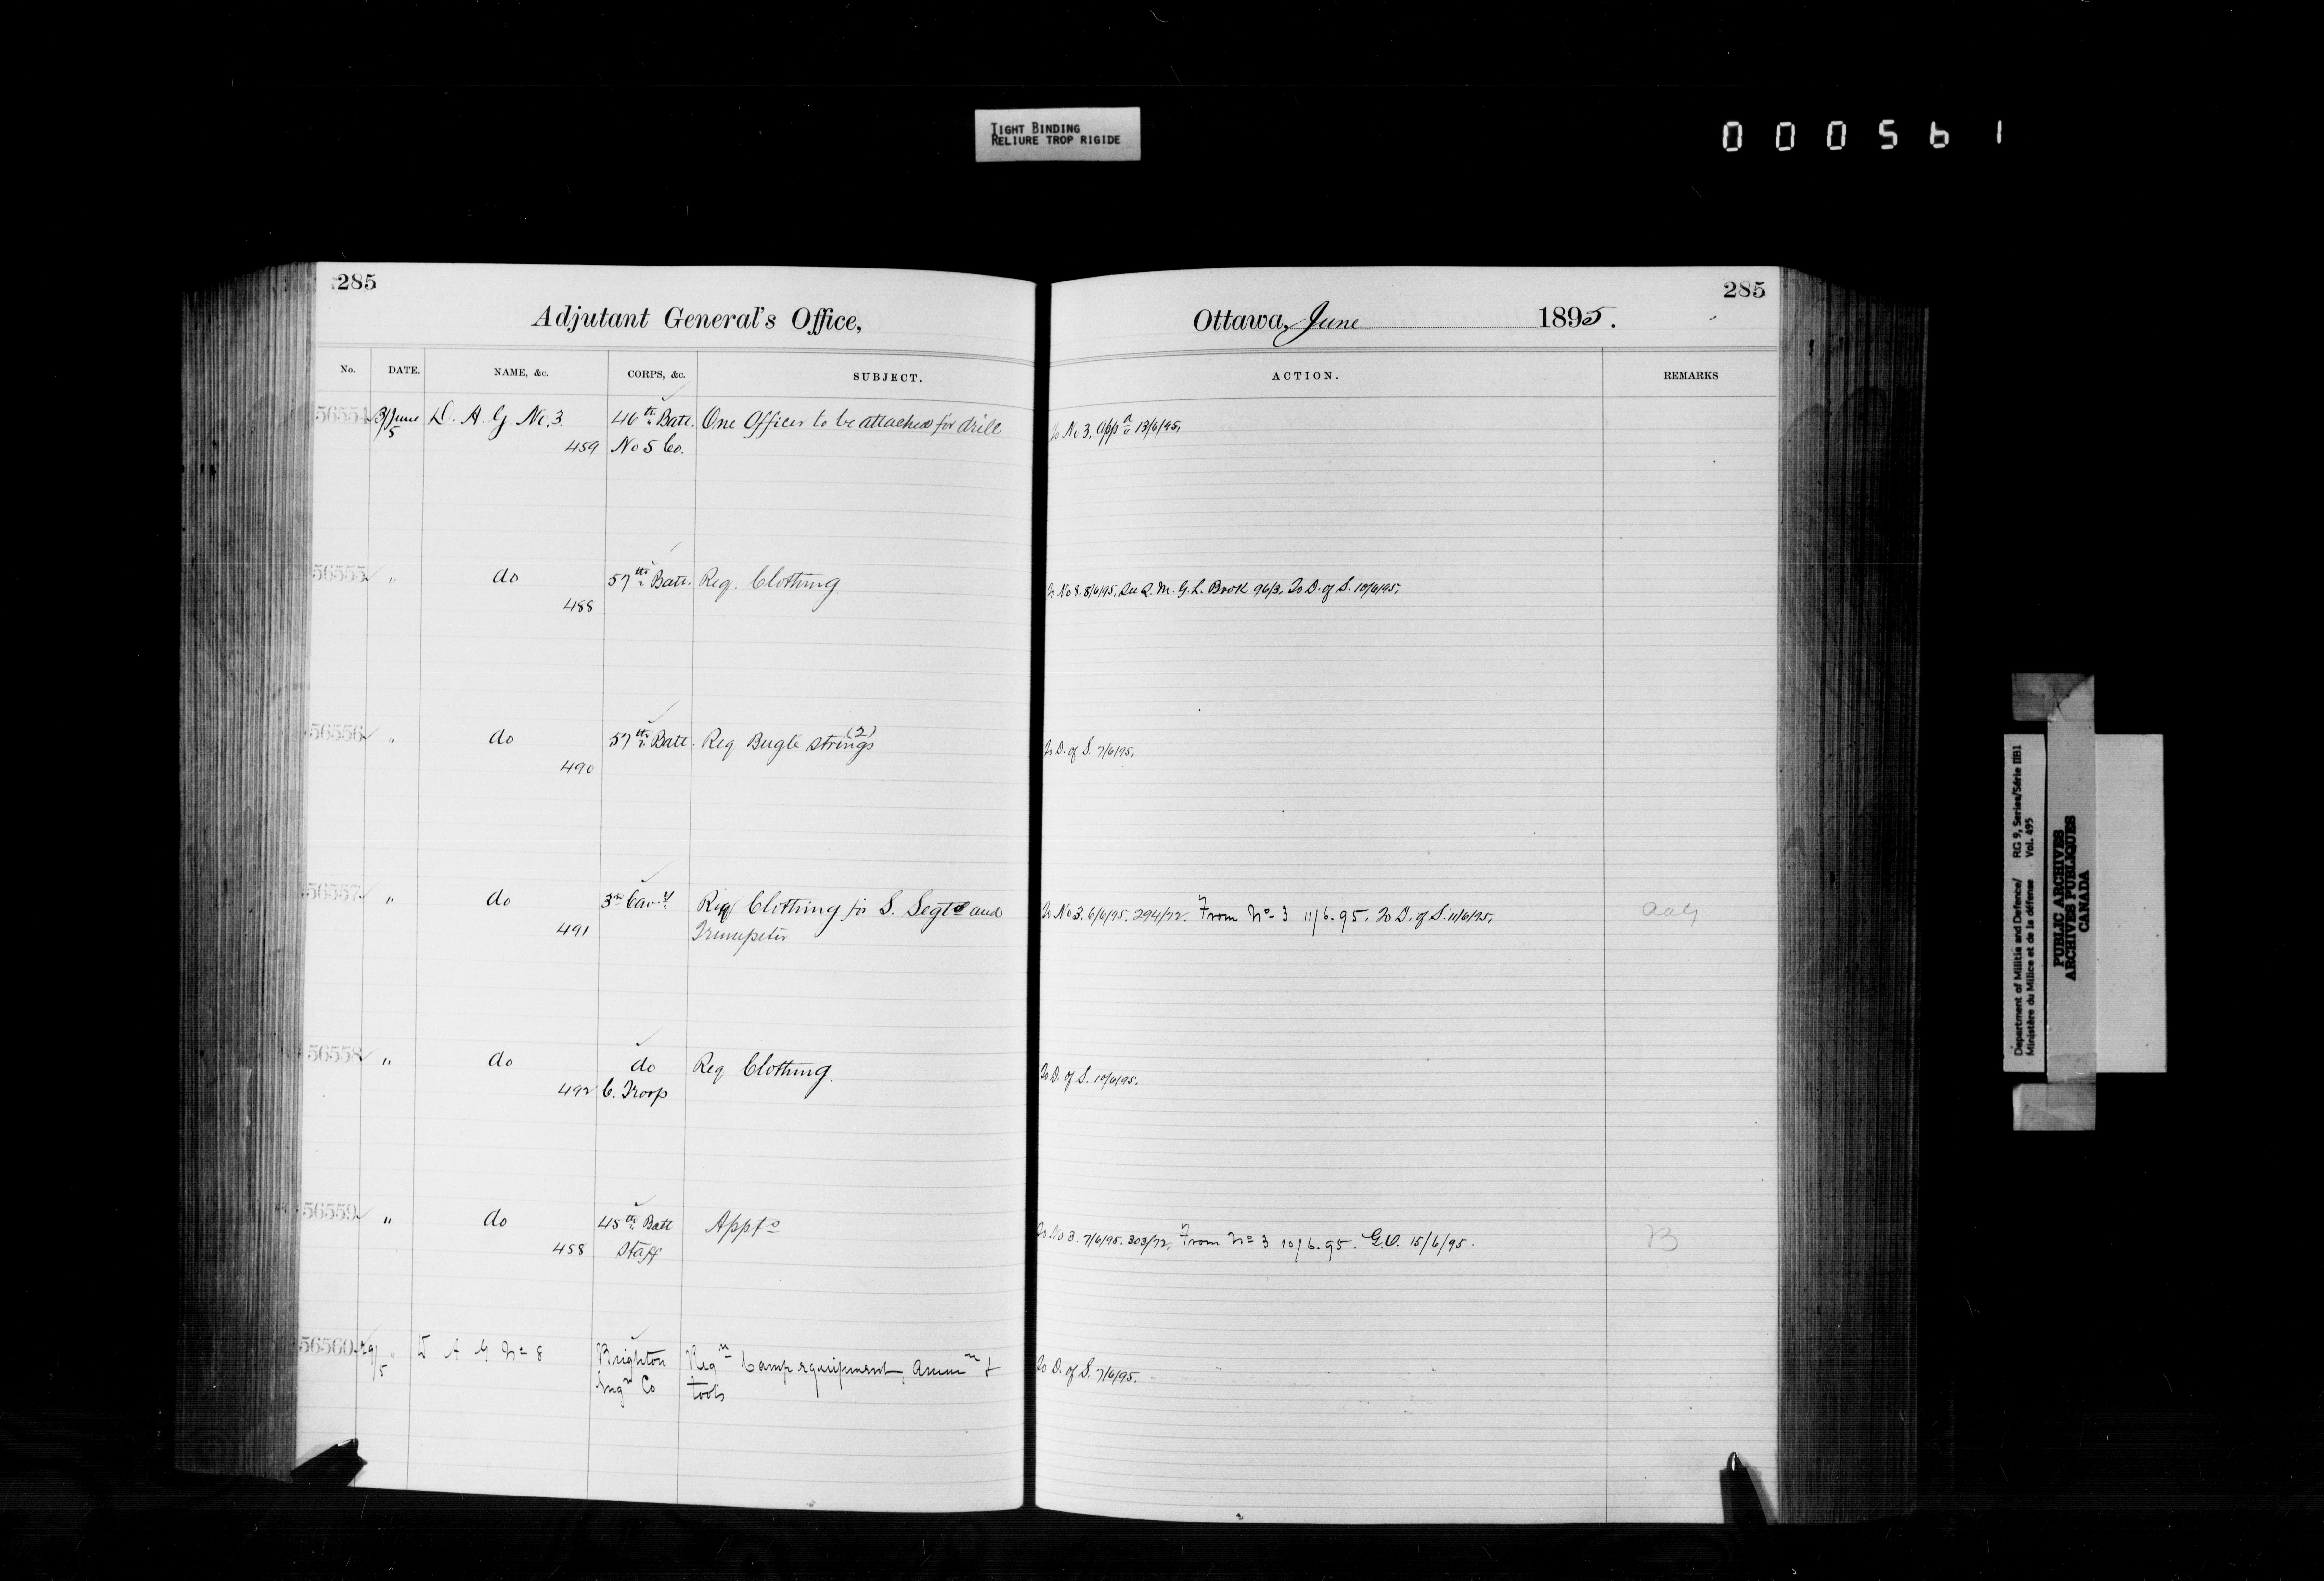 TIGHT BINDING
RELIURE TROP RIGIDE
000561
285
Adjutant General's Office,
No. DATE. NAME, &c. CORPS, &c. SUBJECT.
56554 3/June D. A. G. No. 3. 46th Batt. One Officer to be attached for drill
5 459 No 5 Co.
56555 " do 57th Batt. Req. Clothing
488
56556 " do 57th Batt. Req Bugle strings (2)
490
56557 " do 3rd Cavy. Req Clothing for S. Segts and
491 Trumpeter
56558 " do do Req Clothing.
492 C. Troop
56559 " do 45th Batt Appts
458 Staff
56560 29/5 D A G No 8 Brighton Reqn Camp equipment, Ammn &
Engr Co tools
285
Ottawa, June 1895.
ACTION. REMARKS
To No 3. appd 13/6/95.
To No 8. 8/6/95. See Q. M. G. L. Book 96/3. To D. of S. 10/6/95.
To D. of S. 7/6/95.
To No 3. 6/6/95. 294/72. From No 3 11/6.95. To D. of S. 11/6/95.
To D. of S. 10/6/95.
To No 3. 7/6/95. 303/72. From No 3 10/6.95. G.O. 15/6/95. B
To D. of S. 7/6/95.
Department of Militia and Defence/ RG 9, Series/Série IIB1
Ministère du Milice et de la défense Vol. 495
PUBLIC ARCHIVES
ARCHIVES PUBLIQUES
CANADA